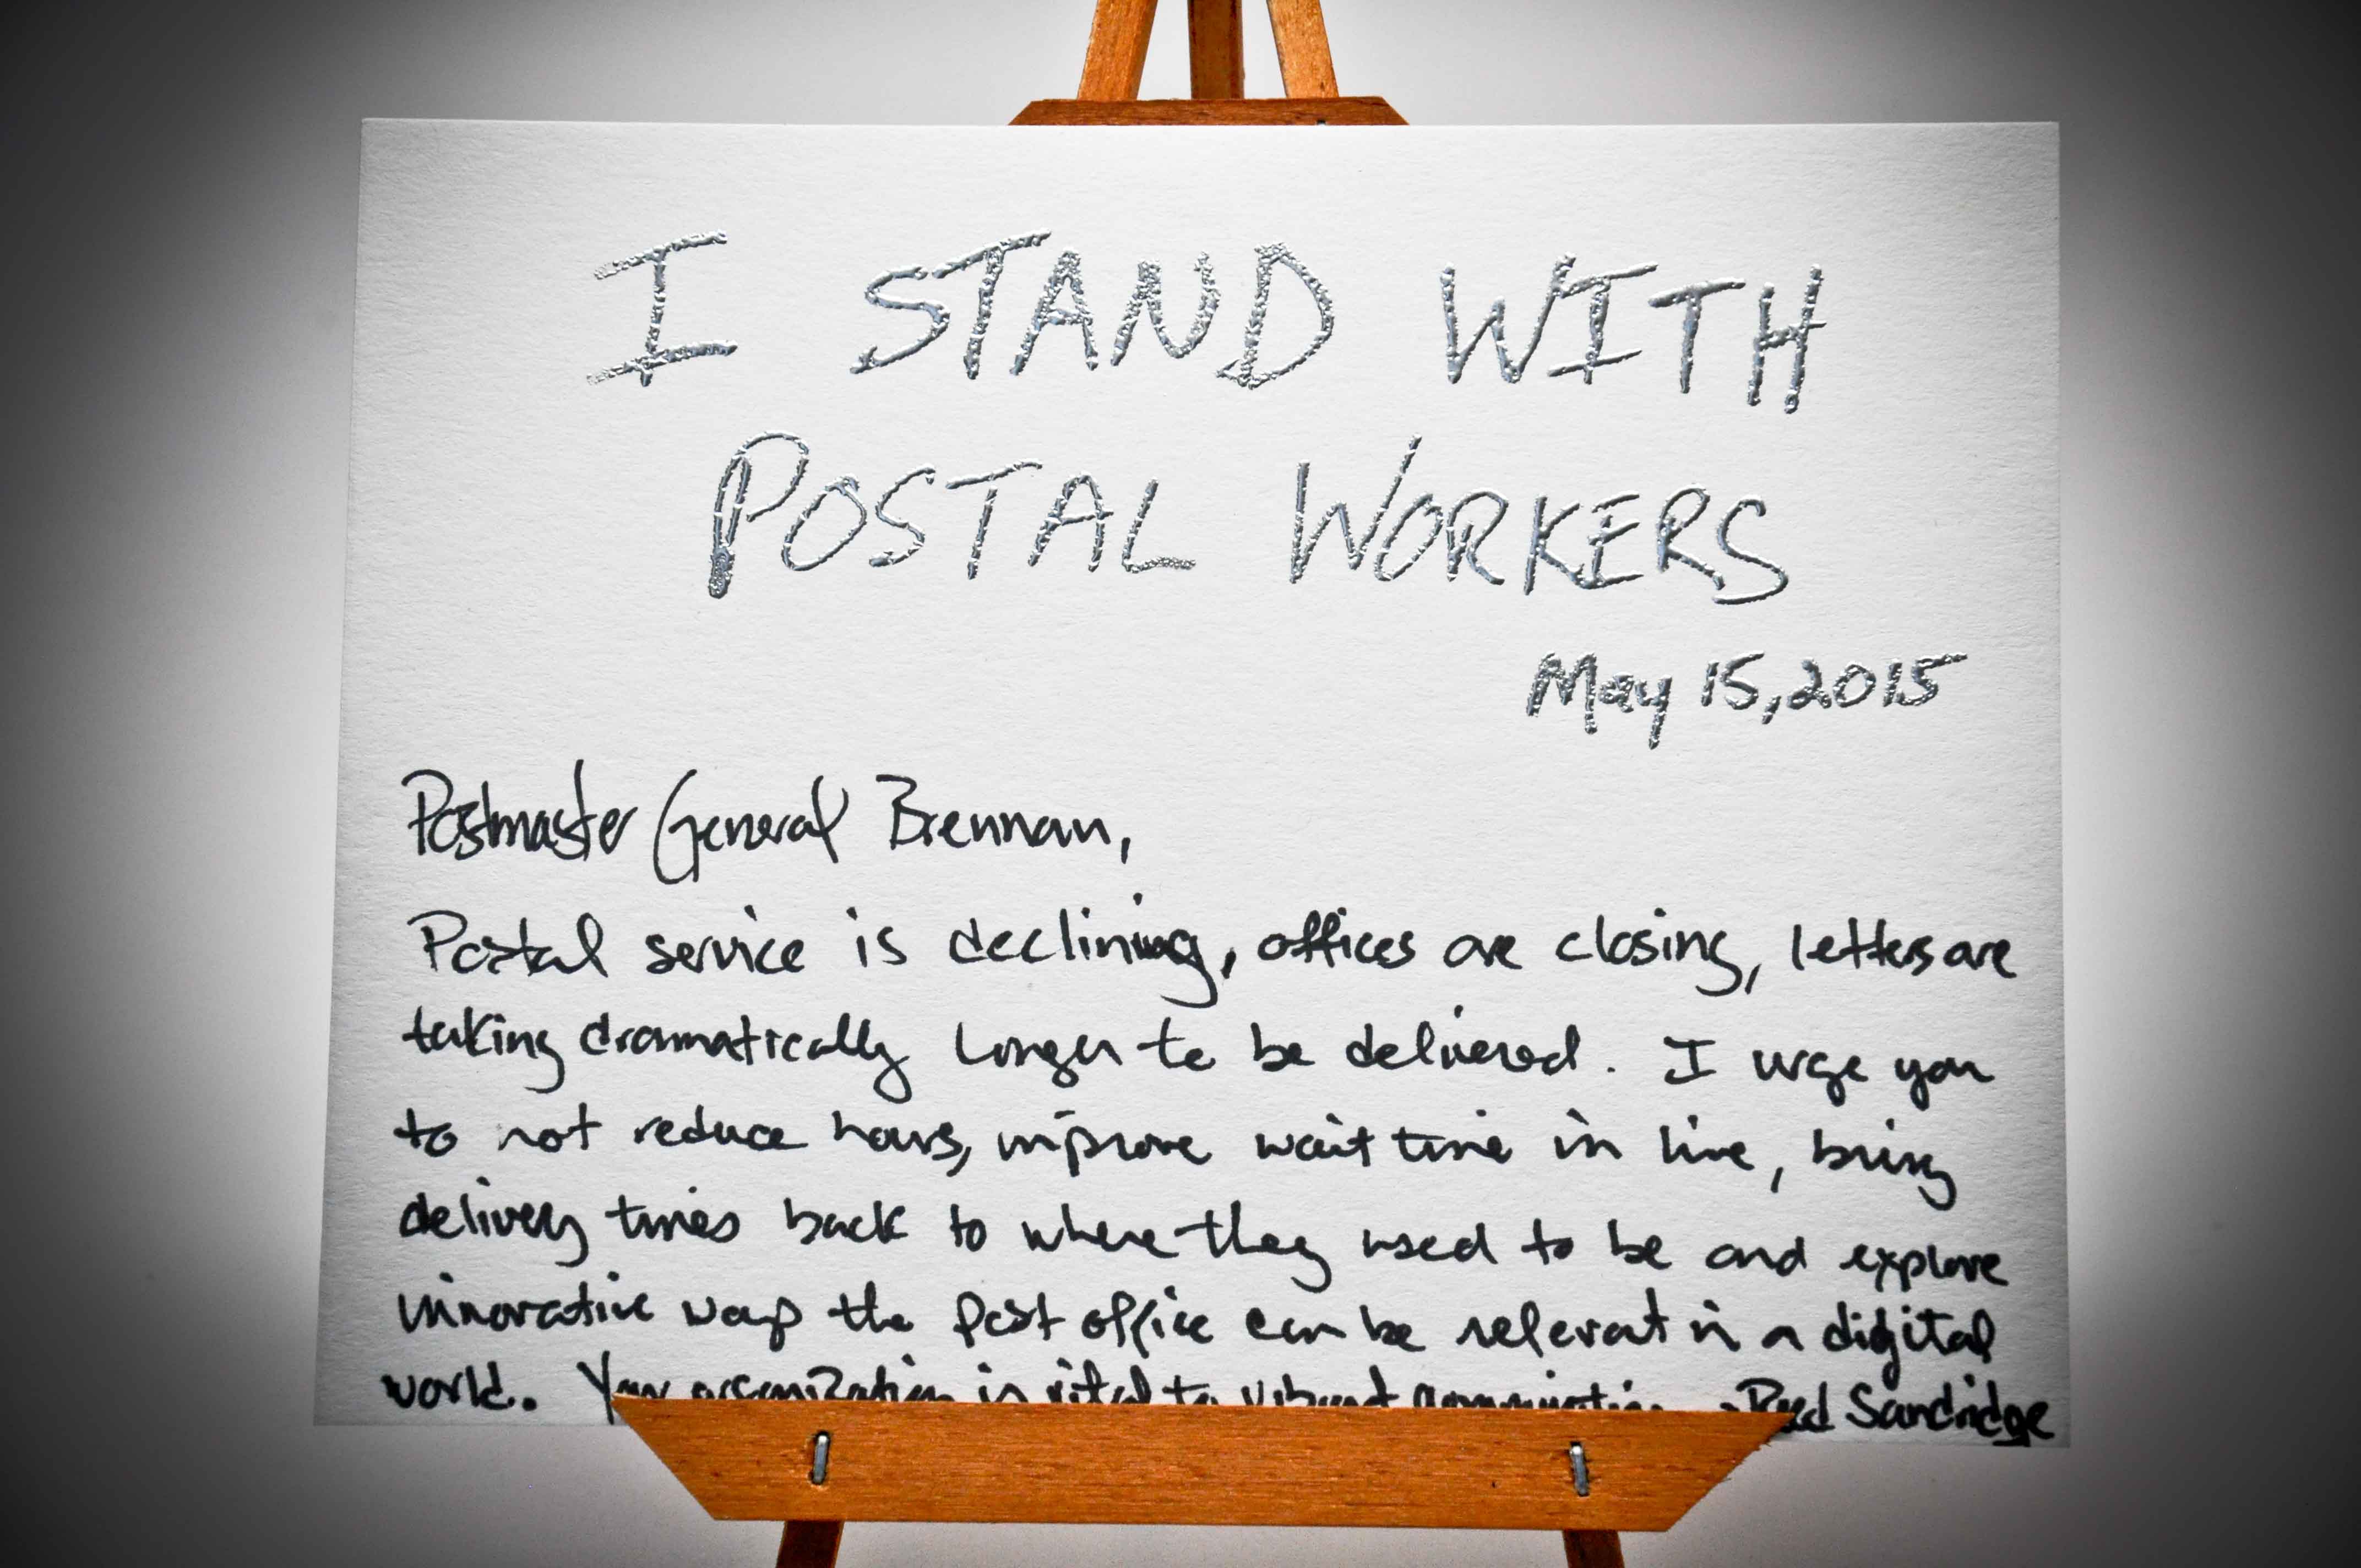 I STAND WITH
POSTAL WORKERS
May 15, 2015
Postmaster General Brennan,
Postal service is declining, offices are closing, letters are
taking dramatically longer to be delivered. I urge you
to not reduce hours, improve wait time in line, bring
delivery times back to where they used to be and explore
innovative ways the post office can be relevant in a digital
world. Your organization is vital to vibrant communities. -Reed Sandridge